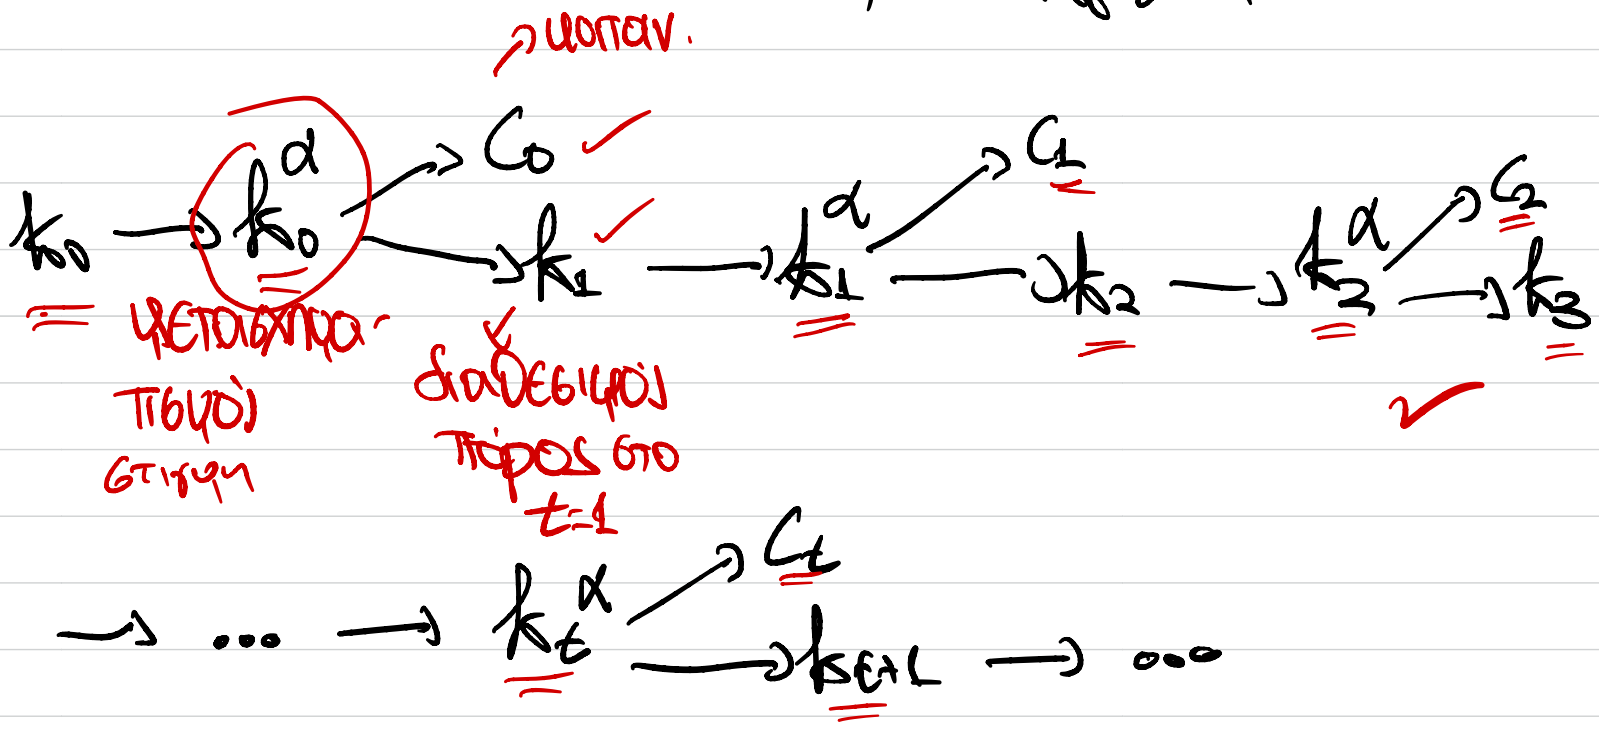 k_0 → k_0^α → C_0 ✓
→ k_1 ✓ → k_1^α → C_1
→ k_2 → k_2^α → C_2
→ k_3 ✓
μετασχημα-
τισμός
στιγμή
διαθέσιμος
πόρος στο
t=1
→ ... → k_t^α → C_t
→ k_{t+1} → ...